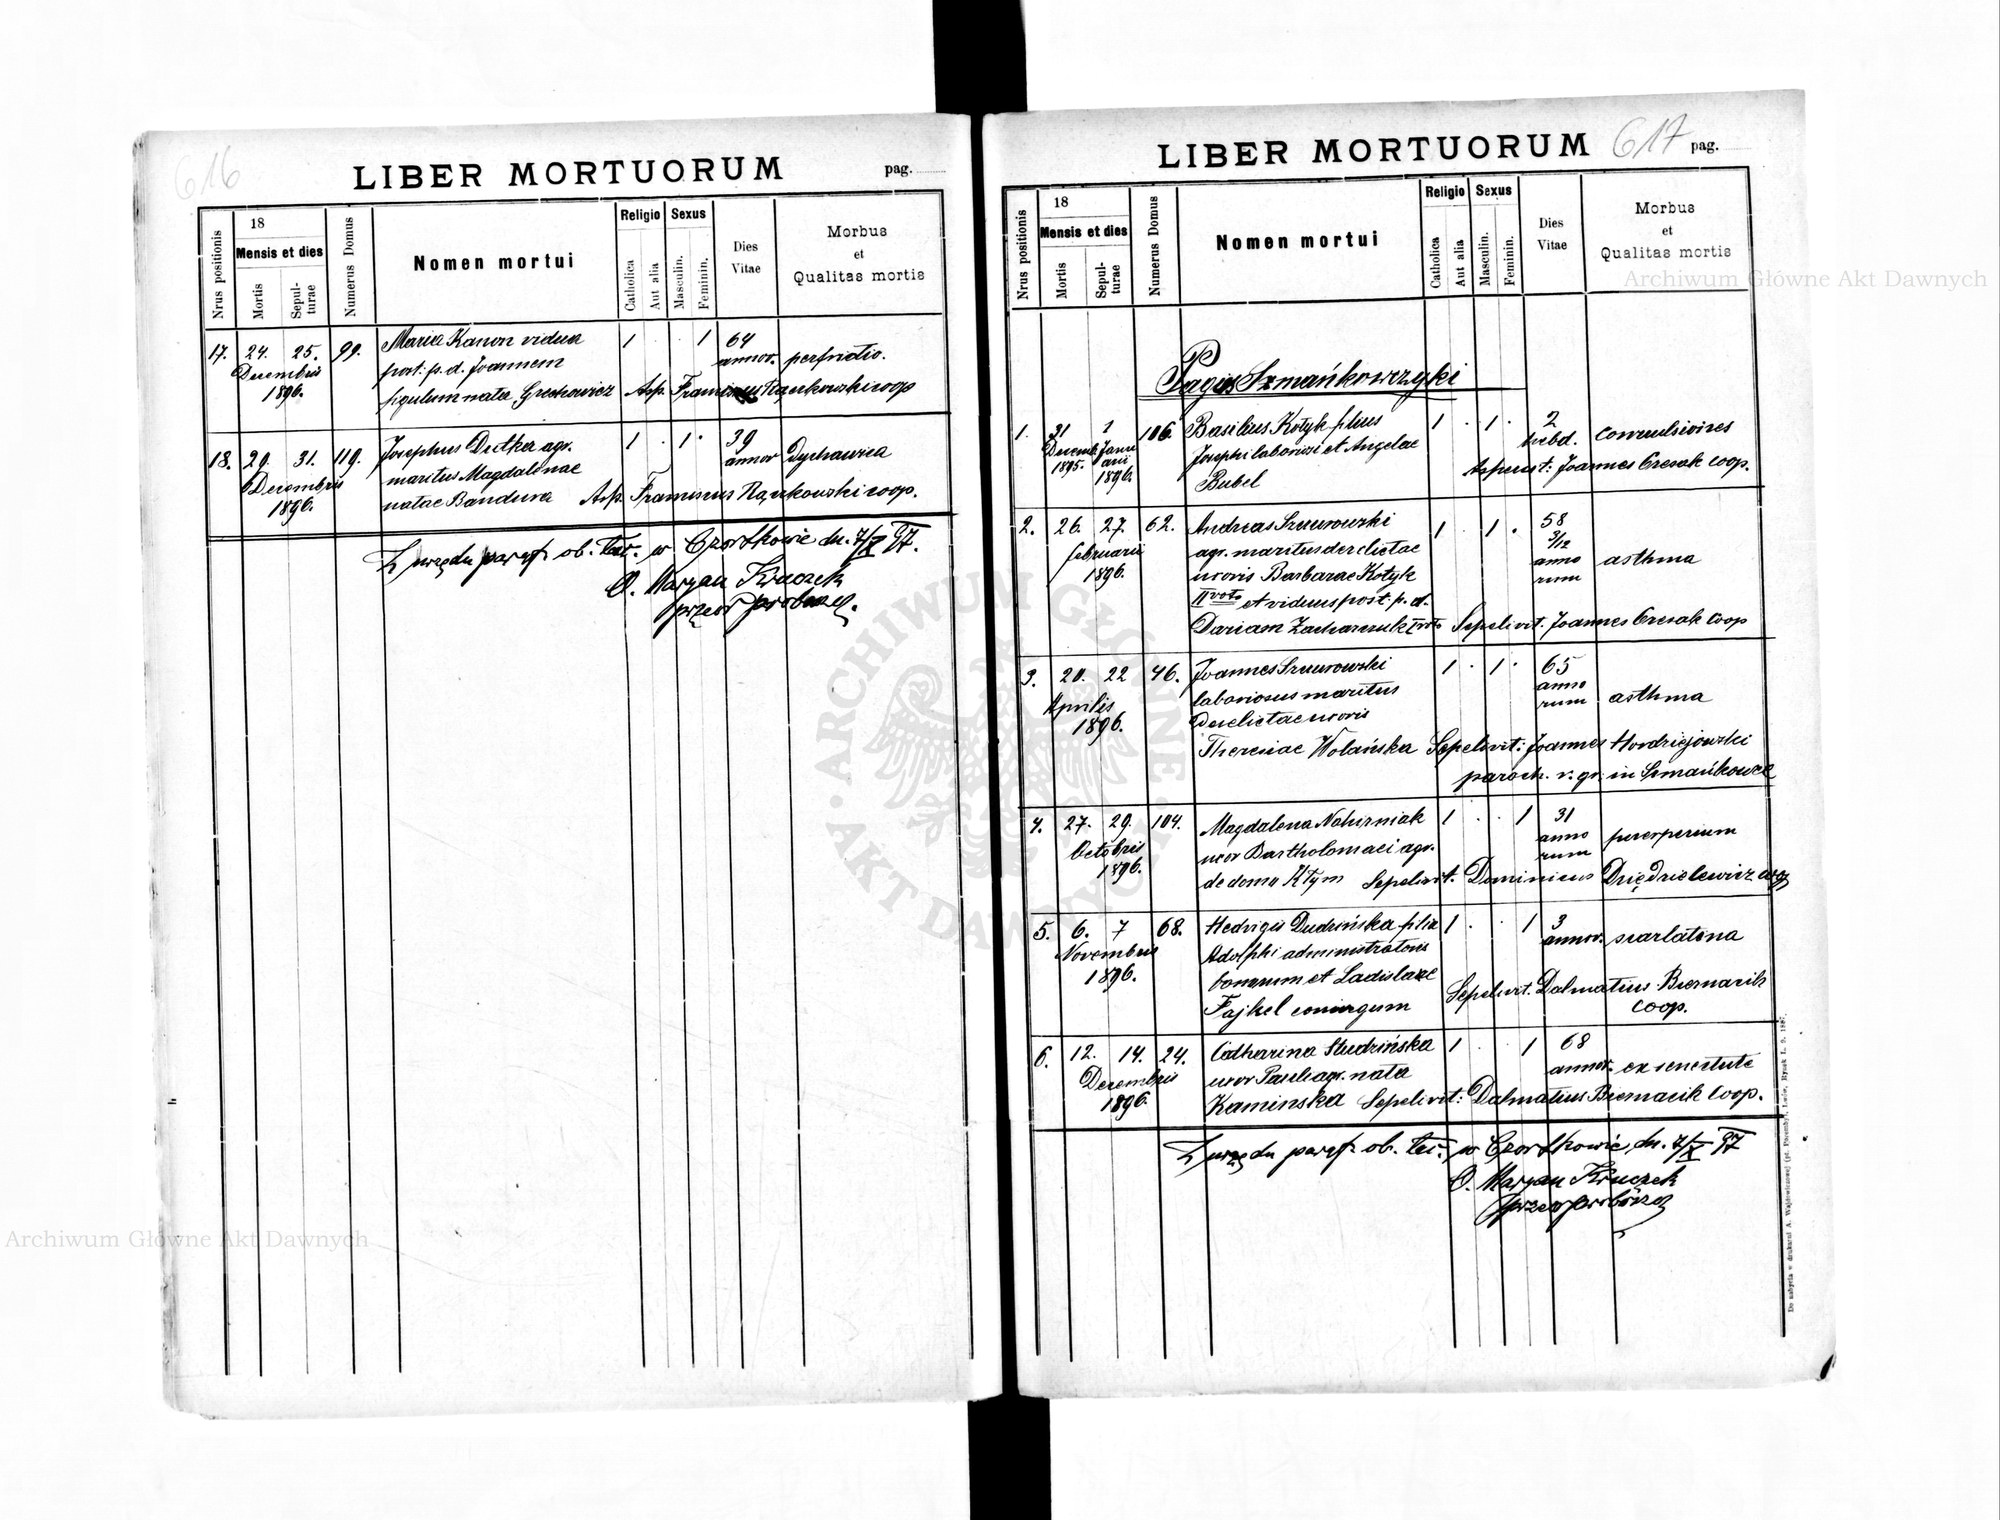 616
LIBER MORTUORUM
pag.
Nrus positionis
18
Mensis et dies
Mortis
Sepulturae
Numerus Domus
Nomen mortui
Religio
Catholica
Aut alia
Sexus
Masculin.
Feminin.
Dies Vitae
Morbus et Qualitas mortis
17. 24. 25. 99. Maria Kanon vidua 1 . . 1 64
Decembris post. p. d. Joannem annor. perfrictio.
1896. figulum nata Grechowicz Asp. Franciscus Rączkowski coop
18. 29. 31. 119. Josephus Dutka agr. 1 . 1 . 39
Decembris maritus Magdalenae annor Dychawica
1896. natae Bandura Asp. Franciscus Rączkowski coop.
Z urzędu paraf. ob. łac. w Czortkowie dn. 7/X 97.
O. Maryan Kruczek
przeor proboszcz.
617
LIBER MORTUORUM
pag.
Nrus positionis
18
Mensis et dies
Mortis
Sepulturae
Numerus Domus
Nomen mortui
Religio
Catholica
Aut alia
Sexus
Masculin.
Feminin.
Dies Vitae
Morbus et Qualitas mortis
Pagus Szmańkowczyki
1. 31 1 106. Basilius Kotyk filius 1 . 1 . 2
Decemb. Janu Josephi laboriosi et Angelae hebd. convulsiones
1895. arii 1896. Bubel Aspersit: Joannes Cresak coop.
2. 26. 27. 62. Andreas Sznurowski 1 . 1 . 58
februarii agr. maritus derelictae 3/12
1896. uxoris Barbarae Kotyk anno asthma
II voto et viduus post. p. d. rum
Dariam Zacharczuk I voto Sepelivit. Joannes Cresak coop
3. 20. 22 46. Joannes Sznurowski 1 . 1 . 65
Aprilis laboriosus maritus anno
1896. Derelictae uxoris rum asthma
Theresiae Wolańska Sepelivit: Joannes Hordziejowski
paroch. r. gr. in Szmańkowce
4. 27. 29. 104. Magdalena Nahirniak 1 . . 1 31
Octobris uxor Bartholomaei agr. anno puerperium
1896. de domo Kłym rum Sepelivit. Dominicus Dziędzielewicz
5. 6. 7 68. Hedvigis Dudzińska filia 1 . . 1 3
Novembris Adolphi administratoris annor. scarlatina
1896. bonorum et Ladislaae
Fajkel coniugum Sepelivit. Dalmatius Biernacik
coop.
6. 12. 14. 24. Catharina Studzińska 1 . . 1 68
Decembris uxor Pauli agr. nata annor. ex senectute
1896. Kaminska Sepelivit: Dalmatius Biernacik coop.
Z urzędu paraf. ob. łac. w Czortkowie, dn. 7/X 97
O. Maryan Kruczek
przeor proboszcz
Archiwum Główne Akt Dawnych
Archiwum Główne Akt Dawnych
ARCHIWUM GŁÓWNE AKT DAWNYCH